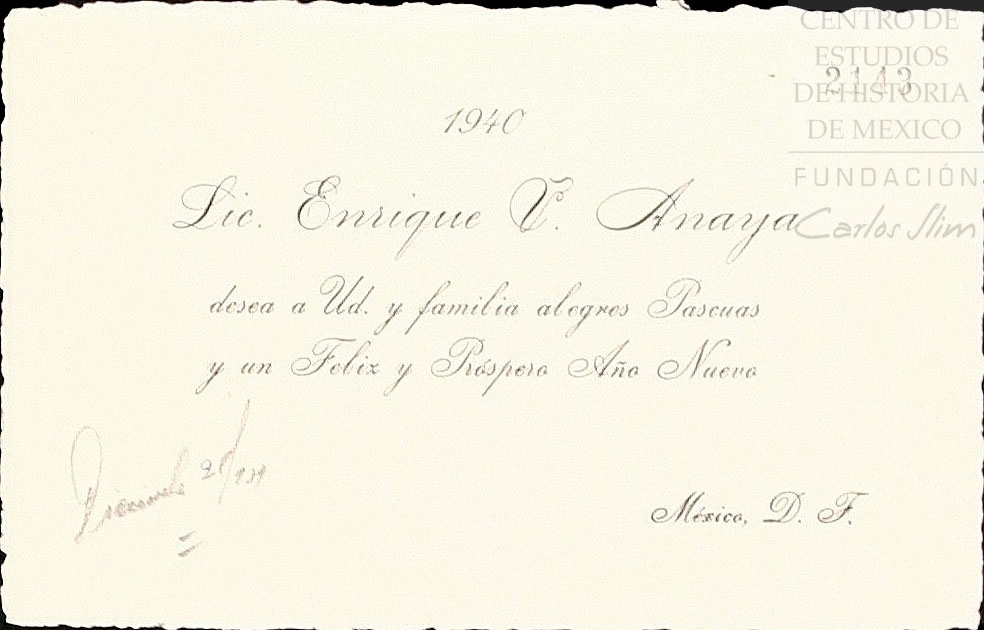 CENTRO DE
ESTUDIOS
2143
DE HISTORIA
DE MEXICO
FUNDACIÓN
Carlos Slim
1940
Lic. Enrique V. Anaya
desea a Ud. y familia alegres Pascuas
y un Feliz y Próspero Año Nuevo
Diciembre
México, D. F.